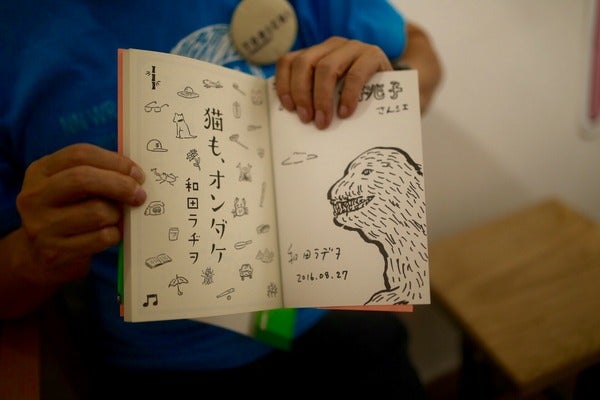 猫も、オンダケ
和田ラヂヲ
子
さん江
和田ラヂヲ
2016.08.27